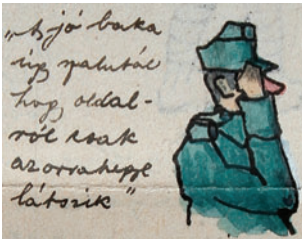 „A jó baka
úgy szalutál
hogy oldal-
ról csak
az orra hegye
látszik”